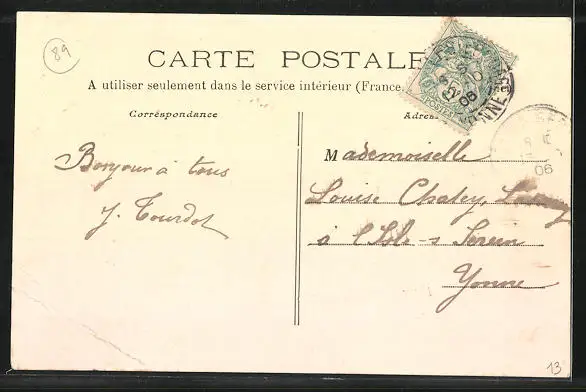 89
CARTE POSTALE
A utiliser seulement dans le service intérieur (France,
Correspondance
Adres
Bonjour à tous
J. Tourdot
Mademoiselle
Louise Chatey,
à l'Isle-s Serein
Yonne
POSTES
YONNE
06
06
13